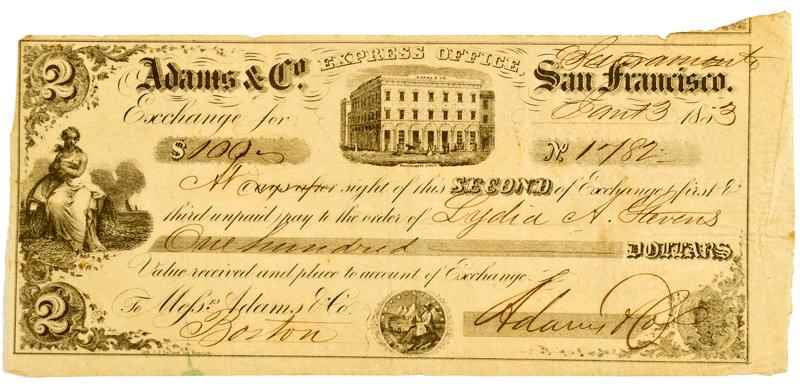 2
Adams & Co. EXPRESS OFFICE, San Francisco.
Sacramento
Exchange for Jany 3 1853
ADAMS & CO.
MONTGOMERY STREET
$ 100 No. 1782
At sight of this SECOND of Exchange, first &
third unpaid pay to the order of Lydia A. Stevens
One hundred DOLLARS
Value received and place to account of Exchange.
2
To Messrs. Adams & Co.
Boston
Adams & Co